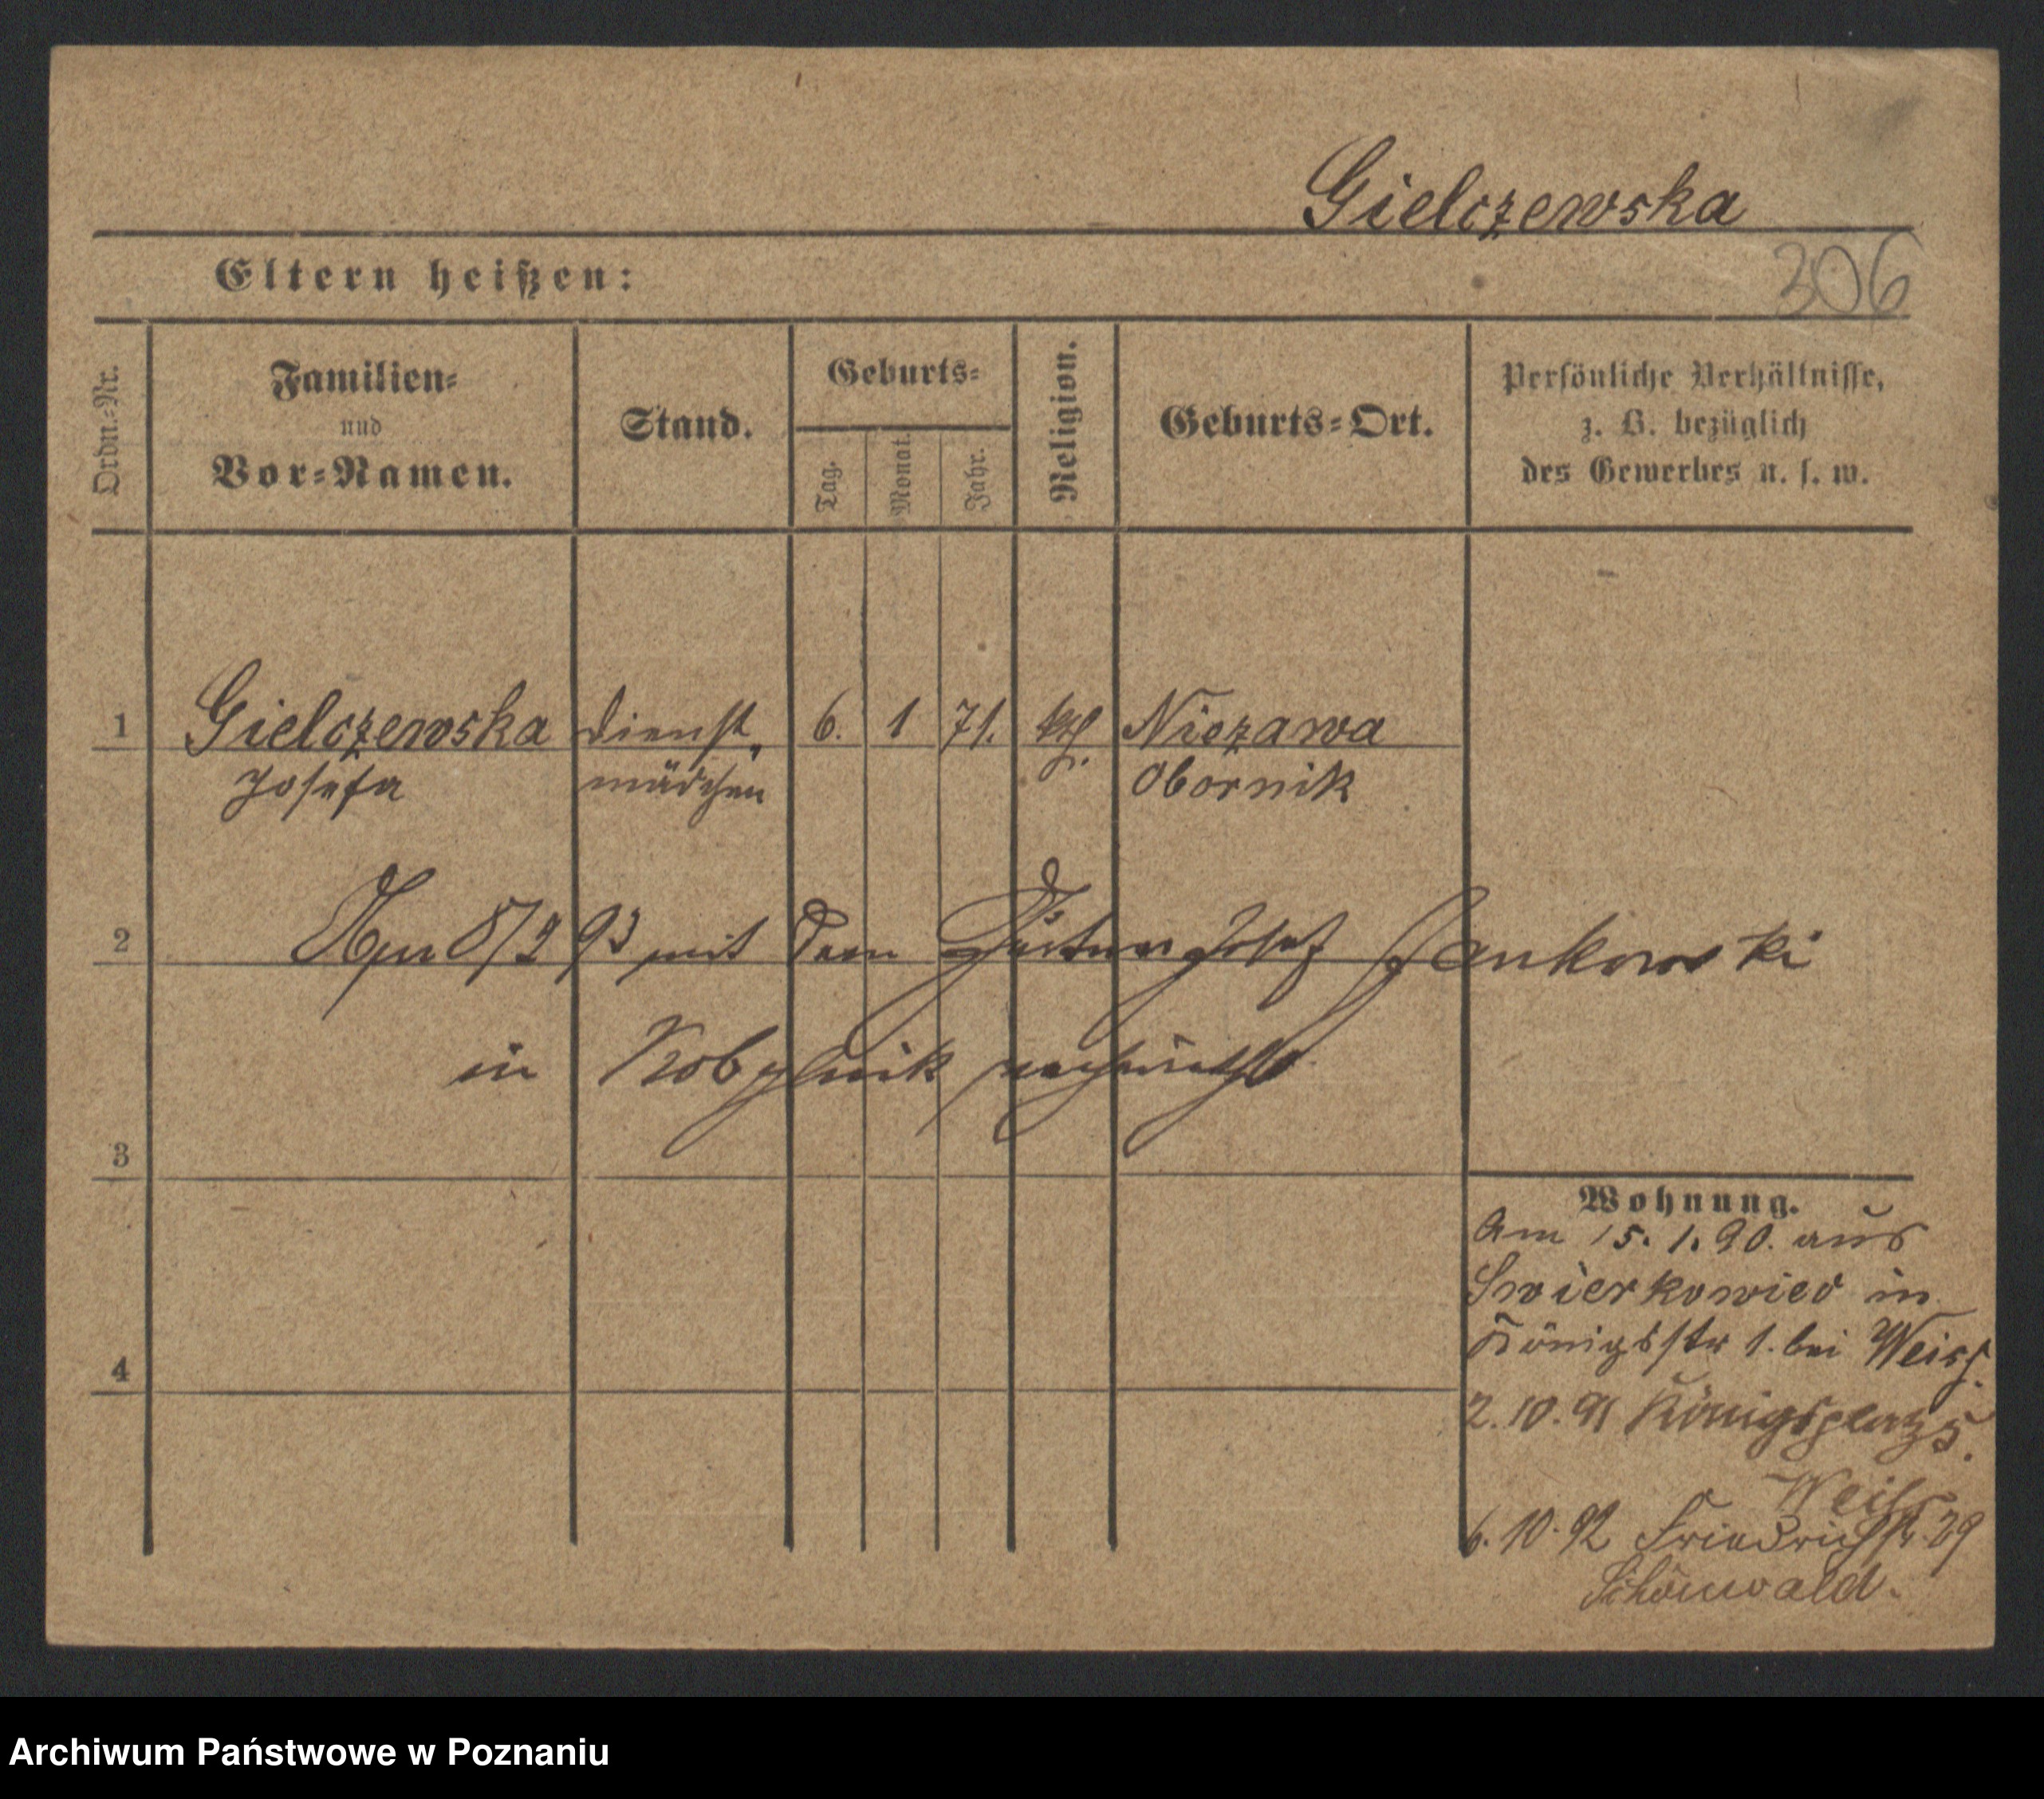 Gielczewska
306
Eltern heißen:
Ordn.-Nr.
Familien-
und
Vor-Namen.
Stand.
Geburts-
Tag.
Monat.
Jahr.
Religion.
Geburts-Ort.
Persönliche Verhältnisse,
z. B. bezüglich
des Gewerbes u. s. w.
1 Gielczewska Dienst- 6. 1 71. kth. Niezawa
Josefa mädchen Obornik
2 93 mit dem Gärtner Josef Jankowski
in verheirathet
3
Wohnung.
Am 15. 1. 90. aus
Swierkowiec in
Königsstr 1. bei Weiss.
4
2. 10. 91 Königsplatz 5.
Weiss
6. 10. 92 Friedrichstr. 29
Schönwald.
Archiwum Państwowe w Poznaniu